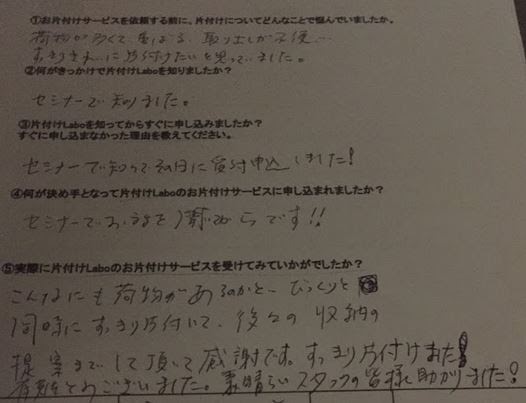 ①お片付けサービスを依頼する前に、片付けについてどんなことで悩んでいましたか。
荷物が多くて、取り出しが不便…
すっきりきれいに片付けたいと思っていました。
②何がきっかけで片付けLaboを知りましたか？
セミナーで知りました。
③片付けLaboを知ってからすぐに申し込みましたか？
すぐに申し込まなかった理由を教えてください。
セミナーで知ってその日に受付申込しました！
④何が決め手となって片付けLaboのお片付けサービスに申し込まれましたか？
セミナーでお話を聴いたからです!!
⑤実際に片付けLaboのお片付けサービスを受けてみていかがでしたか？
こんなにも荷物があるのかと、びっくりと
同時にすっきり片付いて、後々の収納の
提案までして頂いて感謝です。すっきり片付きました！
ありがとうございました。素晴らしいスタッフの皆様、助かりました！